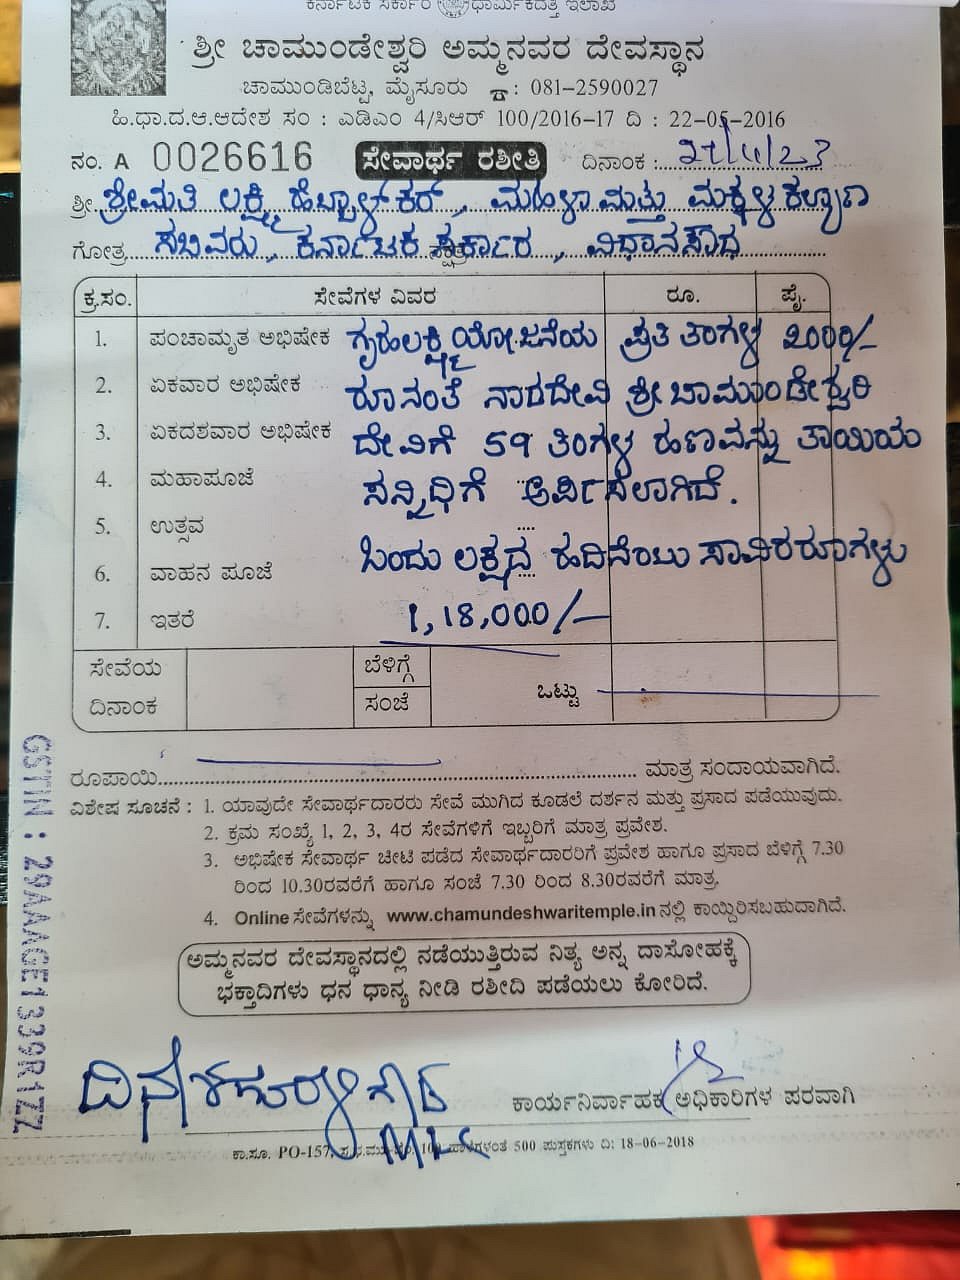 ಕರ್ನಾಟಕ ಸರ್ಕಾರ ಧಾರ್ಮಿಕದತ್ತಿ ಇಲಾಖೆ
ಶ್ರೀ ಚಾಮುಂಡೇಶ್ವರಿ ಅಮ್ಮನವರ ದೇವಸ್ಥಾನ
ಚಾಮುಂಡಿಬೆಟ್ಟ, ಮೈಸೂರು ☎ : 081-2590027
ಹಿ.ಧಾ.ದ.ಆ.ಆದೇಶ ಸಂ : ಎಡಿಎಂ 4/ಸಿಆರ್ 100/2016-17 ದಿ : 22-05-2016
ನಂ. A 0026616 ಸೇವಾರ್ಥ ರಶೀತಿ ದಿನಾಂಕ :
ಶ್ರೀ. ಶ್ರೀಮತಿ ಲಕ್ಷ್ಮಿ ಹೆಬ್ಬಾಳ್ಕರ್, ಮಹಿಳಾ ಮತ್ತು ಮಕ್ಕಳ ಕಲ್ಯಾಣ
ಗೋತ್ರ ಸಚಿವರು, ಕರ್ನಾಟಕ ಸರ್ಕಾರ, ವಿಧಾನಸೌಧ
ಕ್ರ.ಸಂ. ಸೇವೆಗಳ ವಿವರ ರೂ. ಪೈ.
1. ಪಂಚಾಮೃತ ಅಭಿಷೇಕ ಗೃಹಲಕ್ಷ್ಮಿ ಯೋಜನೆಯ ಪ್ರತಿ ತಿಂಗಳ 2000/-
2. ಏಕವಾರ ಅಭಿಷೇಕ ರೂನಂತೆ ನಾಡದೇವಿ ಶ್ರೀ ಚಾಮುಂಡೇಶ್ವರಿ
3. ಏಕದಶವಾರ ಅಭಿಷೇಕ ದೇವಿಗೆ 59 ತಿಂಗಳ ಹಣವನ್ನು ತಾಯಿಯ
4. ಮಹಾಪೂಜೆ ಸನ್ನಿಧಿಗೆ ಅರ್ಪಿಸಲಾಗಿದೆ.
5. ಉತ್ಸವ
6. ವಾಹನ ಪೂಜೆ ಒಂದು ಲಕ್ಷದ ಹದಿನೆಂಟು ಸಾವಿರ ರೂಗಳು
7. ಇತರೆ 1,18,000/-
ಸೇವೆಯ ದಿನಾಂಕ ಬೆಳಿಗ್ಗೆ
ಸಂಜೆ ಒಟ್ಟು
ರೂಪಾಯಿ ಮಾತ್ರ ಸಂದಾಯವಾಗಿದೆ.
ವಿಶೇಷ ಸೂಚನೆ : 1. ಯಾವುದೇ ಸೇವಾರ್ಥದಾರರು ಸೇವೆ ಮುಗಿದ ಕೂಡಲೆ ದರ್ಶನ ಮತ್ತು ಪ್ರಸಾದ ಪಡೆಯುವುದು.
2. ಕ್ರಮ ಸಂಖ್ಯೆ 1, 2, 3, 4ರ ಸೇವೆಗಳಿಗೆ ಇಬ್ಬರಿಗೆ ಮಾತ್ರ ಪ್ರವೇಶ.
3. ಅಭಿಷೇಕ ಸೇವಾರ್ಥ ಚೀಟಿ ಪಡೆದ ಸೇವಾರ್ಥದಾರರಿಗೆ ಪ್ರವೇಶ ಹಾಗೂ ಪ್ರಸಾದ ಬೆಳಿಗ್ಗೆ 7.30
ರಿಂದ 10.30ರವರೆಗೆ ಹಾಗೂ ಸಂಜೆ 7.30 ರಿಂದ 8.30ರವರೆಗೆ ಮಾತ್ರ.
4. Online ಸೇವೆಗಳನ್ನು www.chamundeshwaritemple.in ನಲ್ಲಿ ಕಾಯ್ದಿರಿಸಬಹುದಾಗಿದೆ.
ಅಮ್ಮನವರ ದೇವಸ್ಥಾನದಲ್ಲಿ ನಡೆಯುತ್ತಿರುವ ನಿತ್ಯ ಅನ್ನ ದಾಸೋಹಕ್ಕೆ
ಭಕ್ತಾದಿಗಳು ಧನ ಧಾನ್ಯ ನೀಡಿ ರಶೀದಿ ಪಡೆಯಲು ಕೋರಿದೆ.
GSTIN : 29AAAGE1339R1ZZ
MLC
ಕಾರ್ಯನಿರ್ವಾಹಕ ಅಧಿಕಾರಿಗಳ ಪರವಾಗಿ
ಕಾ.ಸೂ. PO-157, 500 ಪುಸ್ತಕಗಳು ದಿ: 18-06-2018